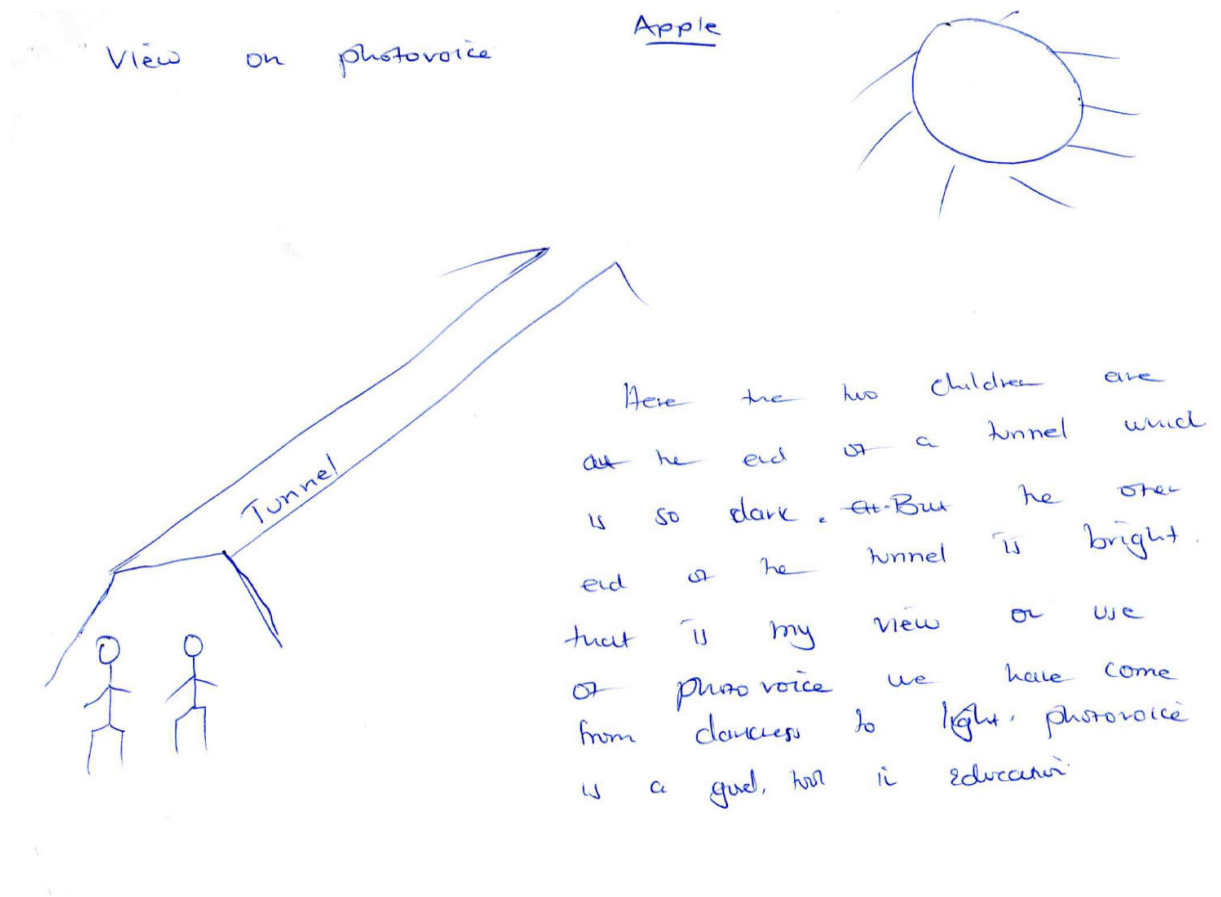 View on photovoice
Apple
Tunnel
Here the two children are
at the end of a tunnel which
is so dark. But the other
end of the tunnel is bright.
that is my view on use
of photovoice we have come
from darkness to light. photovoice
is a good, tool in education